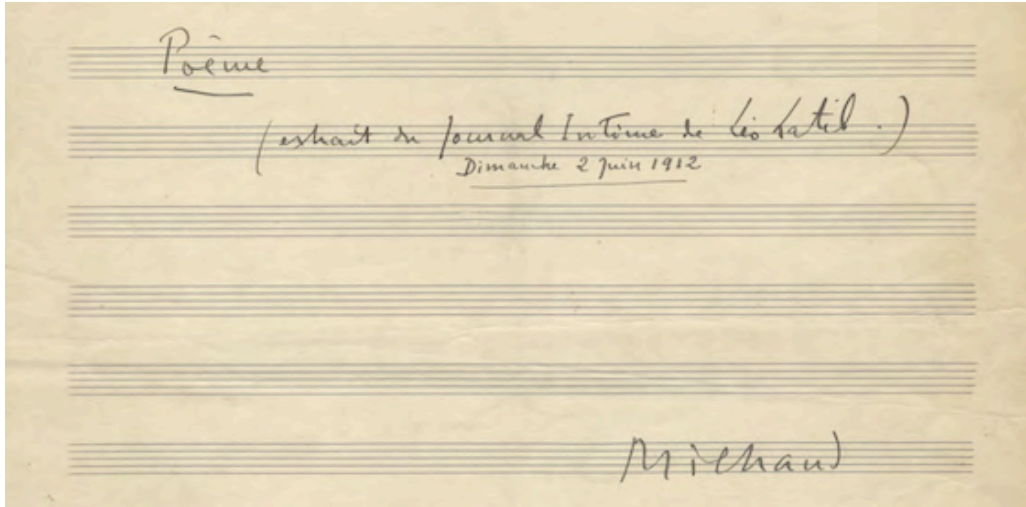 Poème
(extrait du Journal Intime de Léo Latil.)
Dimanche 2 Juin 1912
Milhaud